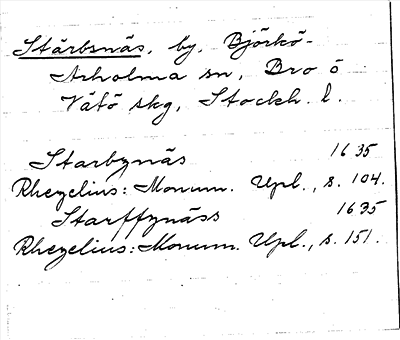 Stärbsnäs, by, Björkö-
Arholma sn, Bro o
Vätö skg, Stockh. l.
Starbynäs 1635
Rhezelius: Monum. Upl., s. 104.
Starffynäss 1635
Rhezelius: Monum. Upl., s. 151.